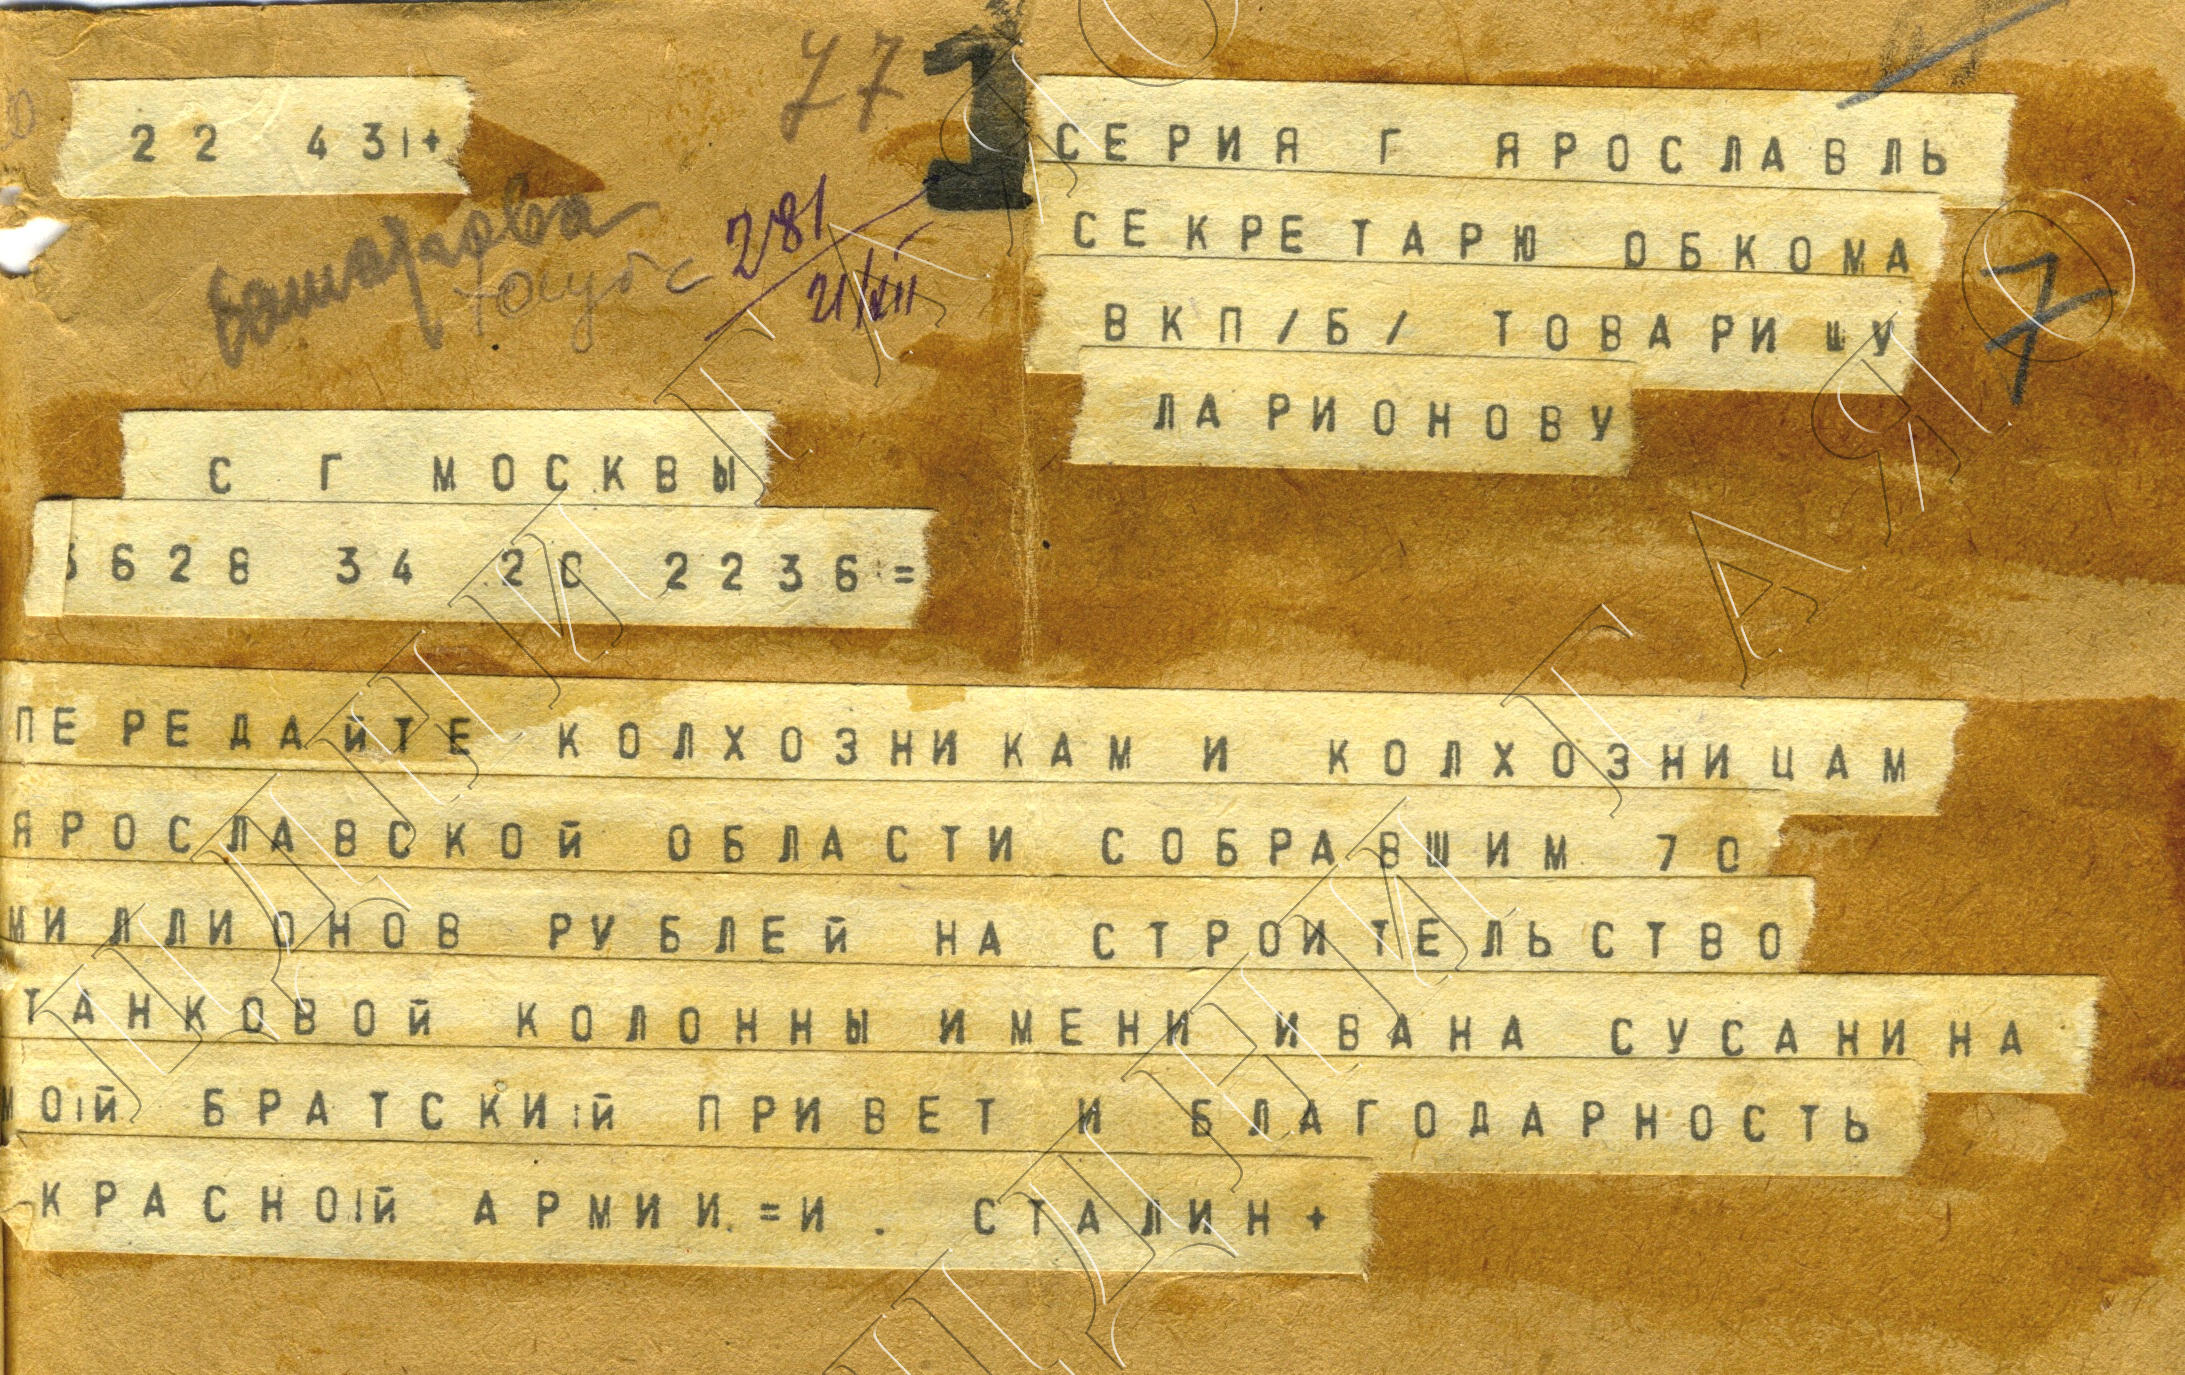 22 43+
27
1
СЕРИЯ Г ЯРОСЛАВЛЬ
СЕКРЕТАРЮ ОБКОМА
ВКП/Б/ ТОВАРИЩУ
ЛАРИОНОВУ
7
281
21/XII
С Г МОСКВЫ
3628 34 20 2236=
ПЕРЕДАЙТЕ КОЛХОЗНИКАМ И КОЛХОЗНИЦАМ
ЯРОСЛАВСКОЙ ОБЛАСТИ СОБРАВШИМ 70
МИЛЛИОНОВ РУБЛЕЙ НА СТРОИТЕЛЬСТВО
ТАНКОВОЙ КОЛОННЫ ИМЕНИ ИВАНА СУСАНИНА
МОЙ БРАТСКИЙ ПРИВЕТ И БЛАГОДАРНОСТЬ
КРАСНОЙ АРМИИ.=И. СТАЛИН+